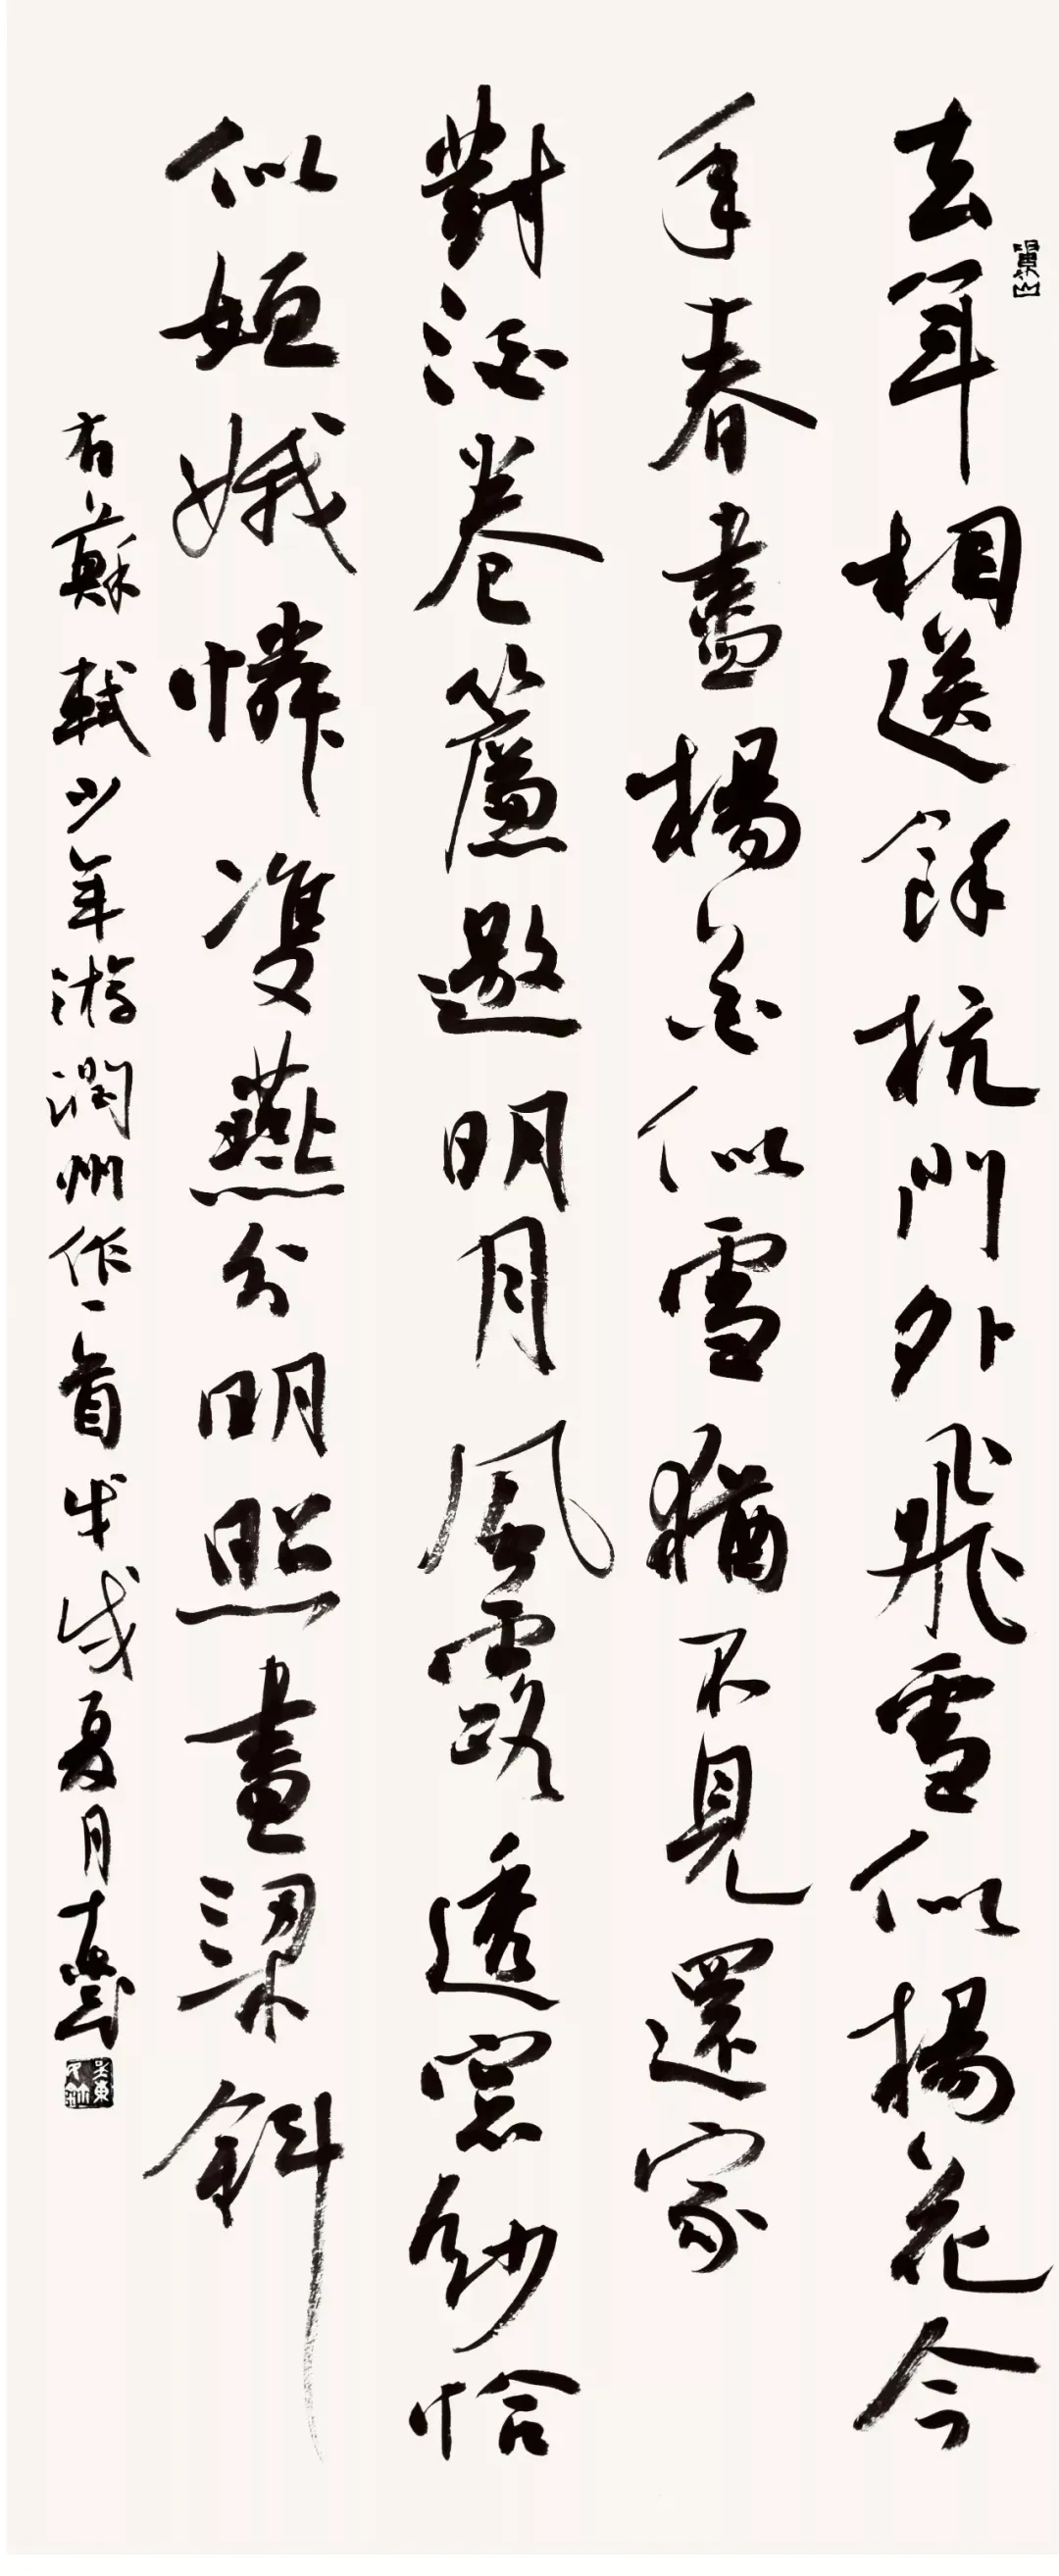 去年相送餘杭門外飛雪似楊花今
年春盡楊花似雪猶不見還家
對酒卷簾邀明月風露透窓紗恰
似姮娥憐雙燕分明照畫梁斜
有蘇軾少年游潤州作一首戊戌夏月